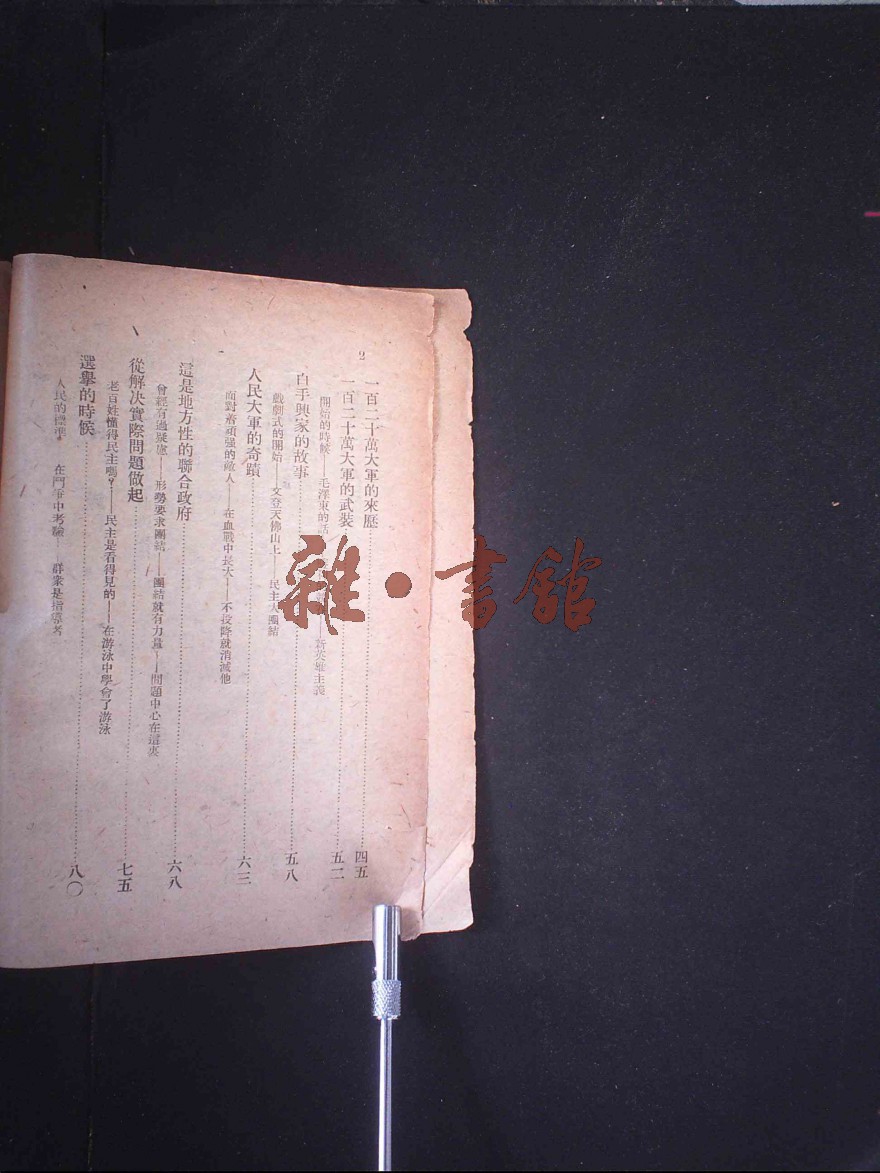 2
一百二十萬大軍的來歷……四五
一百二十萬大軍的武裝……五二
開始的時候——毛澤東的話 新英雄主義
白手興家的故事……五八
戲劇式的開始——文登天佛山上——民主大團結
人民大軍的奇蹟……六三
面對着頑强的敵人——在血戰中長大——不投降就消滅他
這是地方性的聯合政府……六八
曾經有過疑慮——形勢要求團結——團結就有力量——問題中心在這裏
從解决實際問題做起……七五
老百姓懂得民主嗎?——民主是看得見的——在游泳中學會了游泳
選舉的時候……八〇
人民的標準 在鬥爭中考驗——群衆是指導者
雜·書館